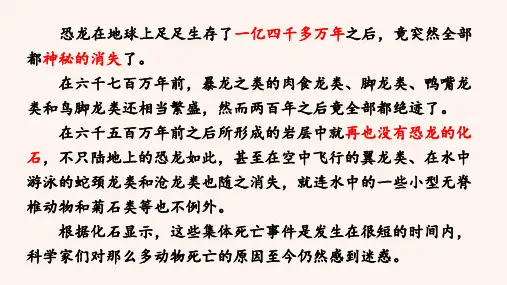 恐龙在地球上足足生存了一亿四千多万年之后，竟突然全部
都神秘的消失了。
在六千七百万年前，暴龙之类的肉食龙类、脚龙类、鸭嘴龙
类和鸟脚龙类还相当繁盛，然而两百年之后竟全部都绝迹了。
在六千五百万年前之后所形成的岩层中就再也没有恐龙的化
石，不只陆地上的恐龙如此，甚至在空中飞行的翼龙类、在水中
游泳的蛇颈龙类和沧龙类也随之消失，就连水中的一些小型无脊
椎动物和菊石类等也不例外。
根据化石显示，这些集体死亡事件是发生在很短的时间内，
科学家们对那么多动物死亡的原因至今仍然感到迷惑。